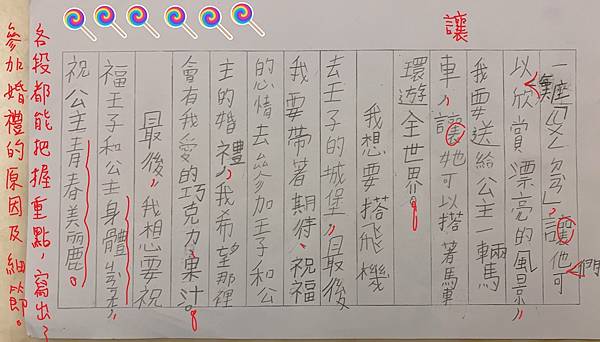 讓
們
一讓他可
以欣賞漂亮的風景,
我要送給公主一輛馬
車,讓她可以搭著馬車
環遊全世界。
我想要搭飛機
去王子的城堡,最後
我要帶著期待、祝福
的心情去參加王子和公
主的婚禮,我希望那裡
會有我愛的巧克力、果汁。
最後,我想要祝
福王子和公主身體
祝公主青春美麗。
各段都能把握重點,寫出了
參加婚禮的原因及細節。